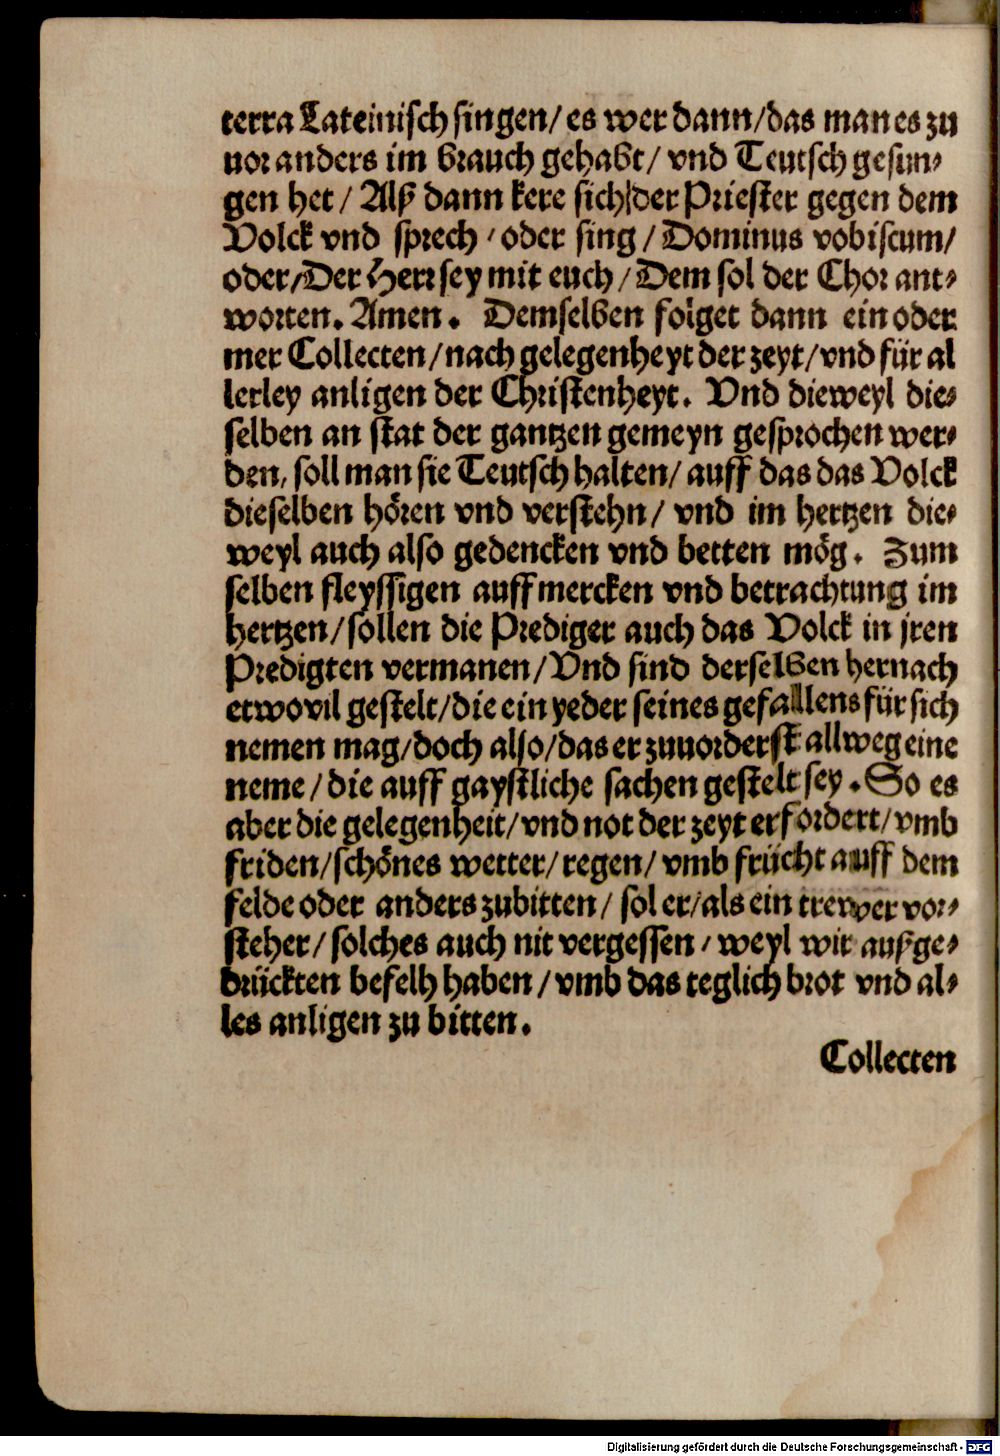 terra Lateinisch singen/ es wer dann/das man es zu
uor anders im brauch gehabt/ vnd Teutsch gesun-
gen het / Alß dann kere sich/der Priester gegen dem
Volck vnd sprech / oder sing / Dominus vobiscum/
oder/Der Herr sey mit euch / Dem sol der Chor ant-
worten. Amen. Demselben folget dann ein oder
mer Collecten/nach gelegenheyt der zeyt/vnd für al
lerley anligen der Christenheyt. Vnd dieweyl die-
selben an stat der gantzen gemeyn gesprochen wer-
den, soll man sie Teutsch halten/ auff das das Volck
dieselben hören vnd verstehn/ vnd im hertzen die-
weyl auch also gedencken vnd betten mög. Zum
selben fleyssigen auffmercken vnd betrachtung im
hertzen/sollen die Prediger auch das Volck in jren
Predigten vermanen/Vnd sind derselben hernach
etwovil gestelt/die ein yeder seines gefallens für sich
nemen mag/doch also/das er zuuorderst allweg eine
neme/die auff gaystliche sachen gestelt sey. So es
aber die gelegenheit/vnd not der zeyt erfordert/vmb
friden/schönes wetter/regen/ vmb frücht auff dem
felde oder anders zubitten/ sol er/als ein trewer vor-
steher/ solches auch nit vergessen / weyl wir außge-
drückten befelh haben/vmb das teglich brot vnd al-
les anligen zu bitten.
Collecten
Digitalisierung gefördert durch die Deutsche Forschungsgemeinschaft - DFG